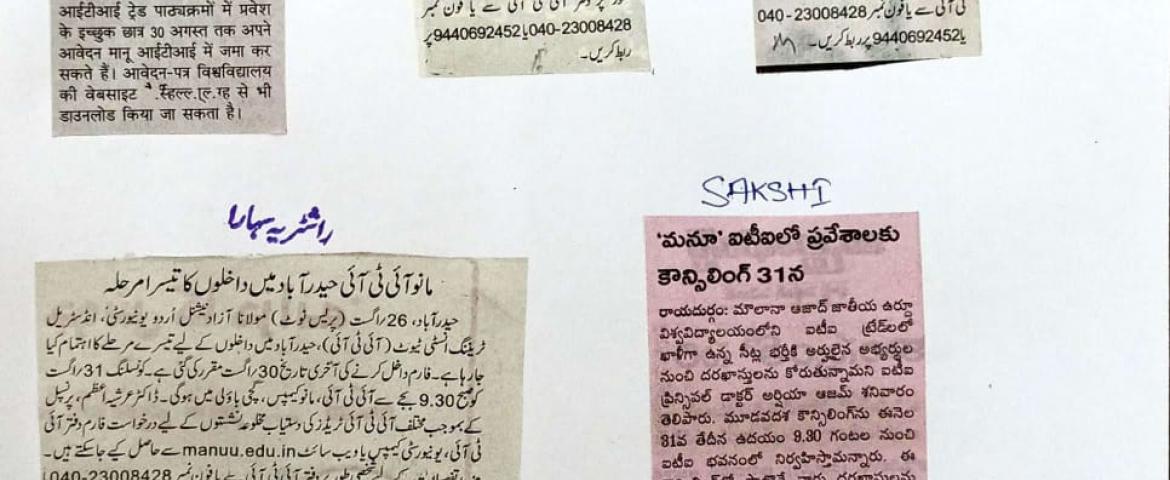 आईटीआई ट्रेड पाठ्यक्रमों में प्रवेश
के इच्छुक छात्र 30 अगस्त तक अपने
आवेदन मानू आईटीआई में जमा कर
सकते हैं। आवेदन-पत्र विश्वविद्यालय
की वेबसाइट से भी
डाउनलोड किया जा सकता है।
سے یا فون نمبر
040-23008428یا9440692452پر
ربط کریں۔
ٹی آئی سے یا فون نمبر 23008428-040
یا9440692452پر ربط کریں۔
راشٹریہ سہارا
مانو آئی ٹی آئی حیدرآباد میں داخلوں کا تیسرا مرحلہ
حیدرآباد، 26/اگست (پریس نوٹ) مولانا آزاد نیشنل اُردو یونیورسٹی، انڈسٹریل
ٹریننگ انسٹی ٹیوٹ (آئی ٹی آئی)، حیدرآباد میں داخلوں کے لیے تیسرے مرحلے کا اہتمام کیا
جارہا ہے۔ فارم داخل کرنے کی آخری تاریخ 30/اگست مقرر کی گئی ہے۔ کونسلنگ 31/اگست
کو صبح 9.30 بجے سے آئی ٹی آئی، مانو کیمپس، گچی باؤلی میں ہوگی۔ ڈاکٹر عرشیہ اعظم، پرنسپل
کے بموجب مختلف آئی ٹی آئی ٹریڈز کی دستیاب مخلوعہ نشستوں کے لیے درخواست فارم دفتر آئی
ٹی آئی، یونیورسٹی کیمپس یا ویب سائٹ manuu.edu.in سے حاصل کیے جاسکتے ہیں۔
دفتر آئی ٹی آئی سے یا فون نمبر 23008428-040
SAKSHI
'మనూ' ఐటీఐలో ప్రవేశాలకు
కౌన్సిలింగ్ 31న
రాయదుర్గం: మౌలానా ఆజాద్ జాతీయ ఉర్దూ
విశ్వవిద్యాలయంలోని ఐటీఐ ట్రేడ్‌లలో
ఖాళీగా ఉన్న సీట్ల భర్తీకి అర్హులైన అభ్యర్థుల
నుంచి దరఖాస్తులను కోరుతున్నామని ఐటీఐ
ప్రిన్సిపల్ డాక్టర్ అర్షియా ఆజమ్ శనివారం
తెలిపారు. మూడవదశ కౌన్సిలింగ్‌ను ఈనెల
31వ తేదీన ఉదయం 9.30 గంటల నుంచి
ఐటీఐ భవనంలో నిర్వహిస్తామన్నారు. ఈ